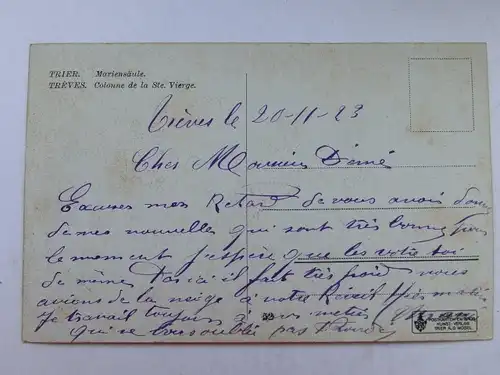 TRIER. Mariensäule.
TRÈVES. Colonne de la Ste. Vierge.
Trèves le 20-11-23
Cher Monsieur Désiré
Excuses mon Retard de vous avoir donné
de mes nouvelles qui sont très bonne pour
le moment j'espère que les votre soi
de même ici il fait très froid nous
avions de la neige à notre Réveil
Je travail toujours à
qui ne vous oublie pas